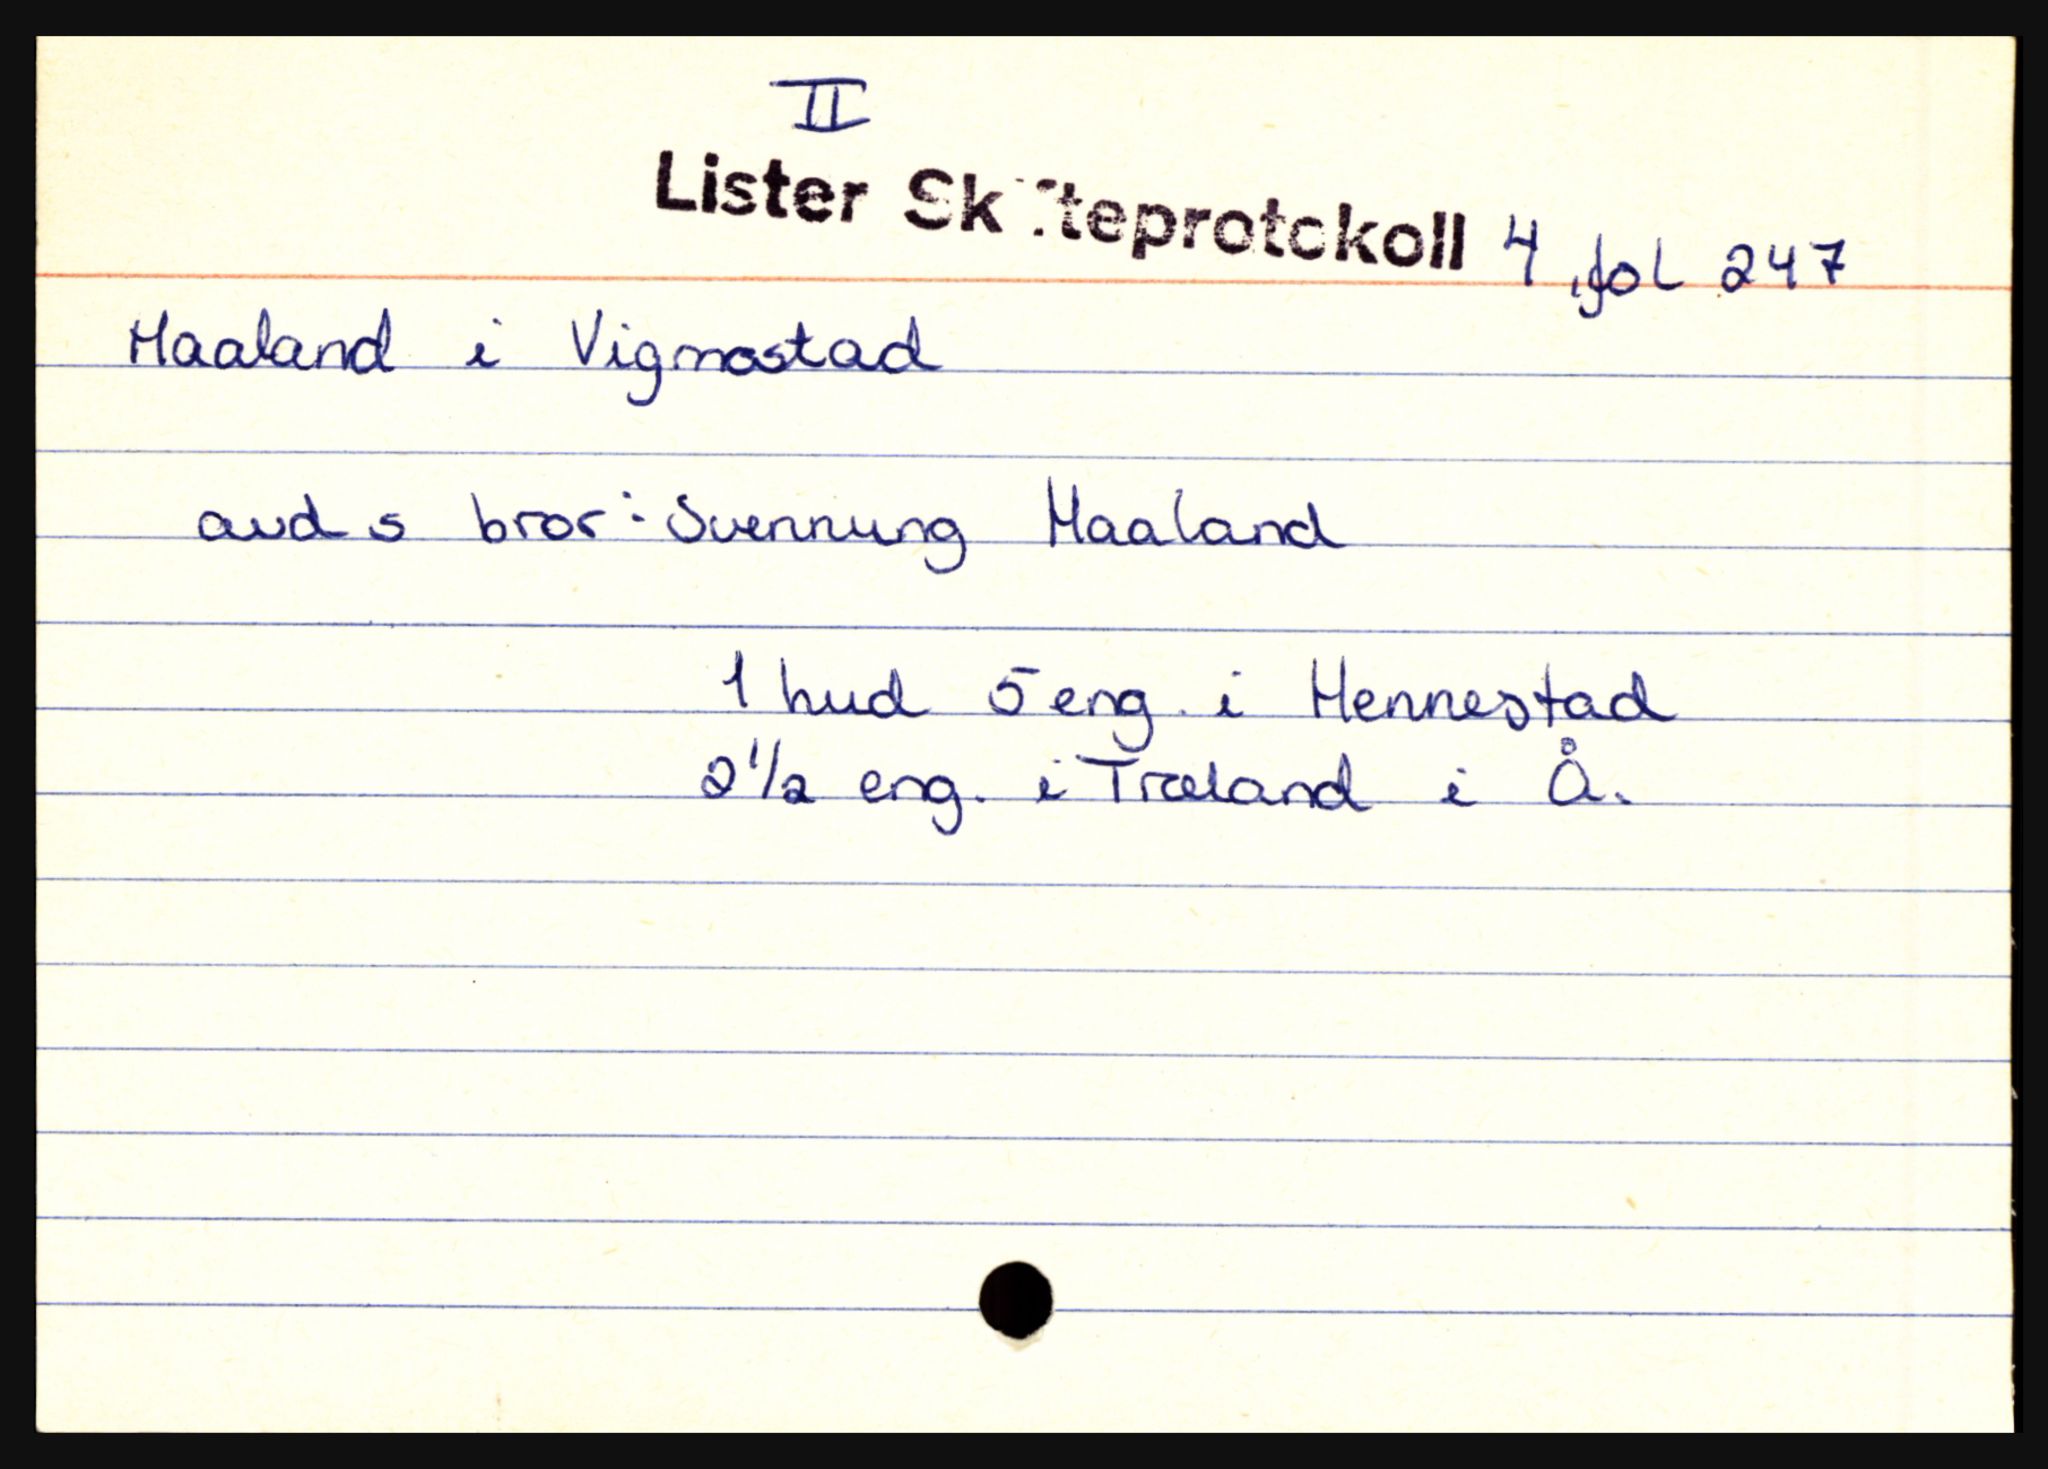 II
Lister Skifteprotokoll 4, fol 247
Haaland i Vigmostad
avd s bror: Svennung Haaland
1 hud 5 eng. i Hennestad
2 1/2 eng. i Træland i Å.